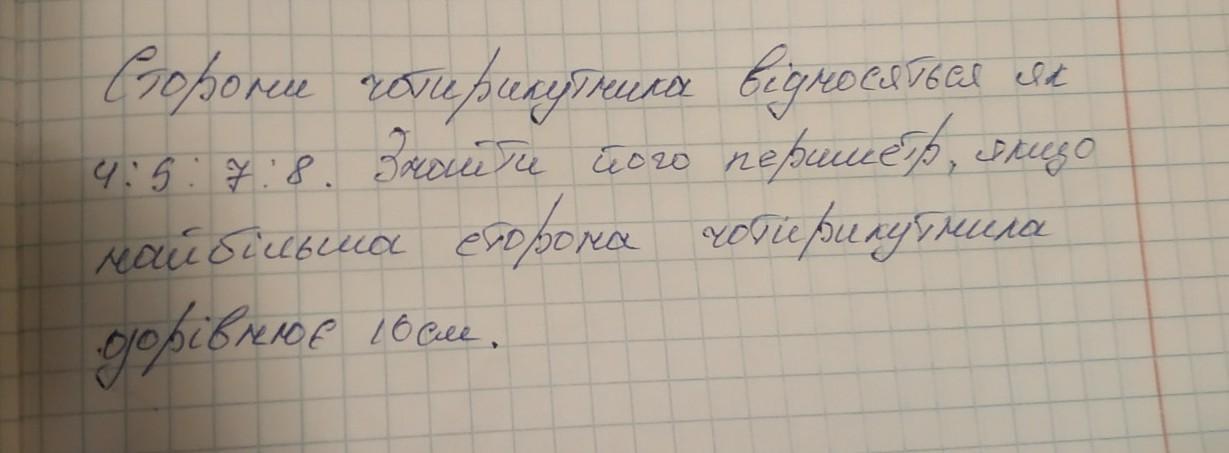 Сторони чотирикутника відносяться як
4:5:7:8. Знайти його периметр, якщо
найбільша сторона чотирикутника
дорівнює 16см.